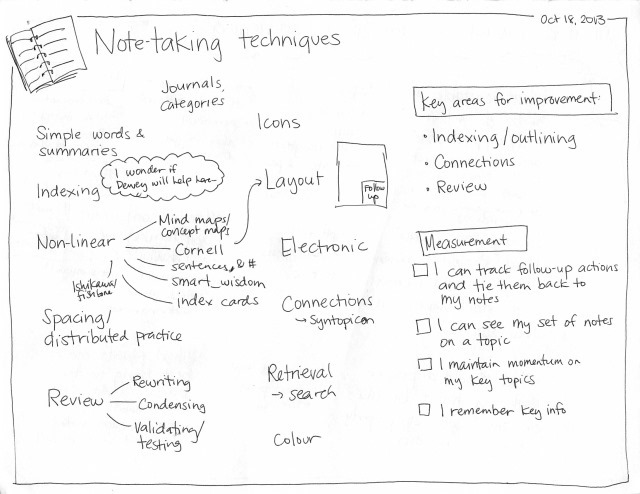 Oct 18, 2013
Note-taking techniques
Journals,
categories
Simple words &
summaries
I wonder if
Dewey will help here
Indexing
Non-linear
Mind maps/
concept maps
Cornell
sentences, & #
smart_wisdom
index cards
Ishikawa/
fishbone
Spacing/
distributed practice
Review
Rewriting
Condensing
Validating/
testing
Icons
Layout
Follow
up
Electronic
Connections
→ Syntopicon
Retrieval
→ search
Colour
Key areas for improvement:
• Indexing/outlining
• Connections
• Review
Measurement
I can track follow-up actions
and tie them back to
my notes
I can see my set of notes
on a topic
I maintain momentum on
my key topics
I remember key info